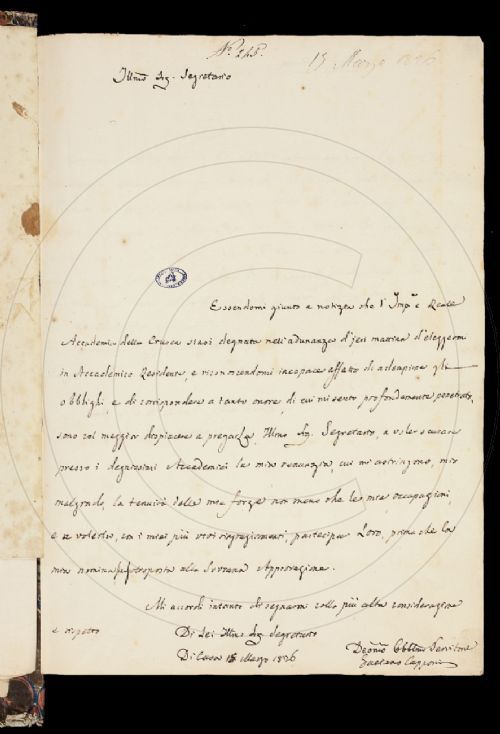 N.° 248.
15 Marzo 1836
Illmo Sig. Segretario
Essendomi giunto a notizia che l'Imp.e e Reale
Accademia della Crusca siasi degnata nell'adunanza d'jeri mattina d'eleggermi
in Accademico Residente, e riconoscendomi incapace affatto di adempirne gli
obblighi, e di corrispondere a tanto onore di cui mi sento profondamente penetrato,
sono col maggior dispiacere a pregarLa, Illmo Sig. Segretario, a voler scusare
presso i degnissimi Accademici la mia renunzia, cui mi astringono, mio
malgrado, la tenuità delle mie forze non meno che le mie occupazioni,
e a volerla, con i miei più vivi ringraziamenti, partecipare Loro, prima che la
mia nomina sia proposta alla Sovrana Approvazione.
Mi accordi intanto di segnarmi colla più alta considerazione
e rispetto
Di Lei Illmo Sig. Segretario
Di Casa 15 Marzo 1836
Devmo Obblmo Servitore
Gaetano Capponi